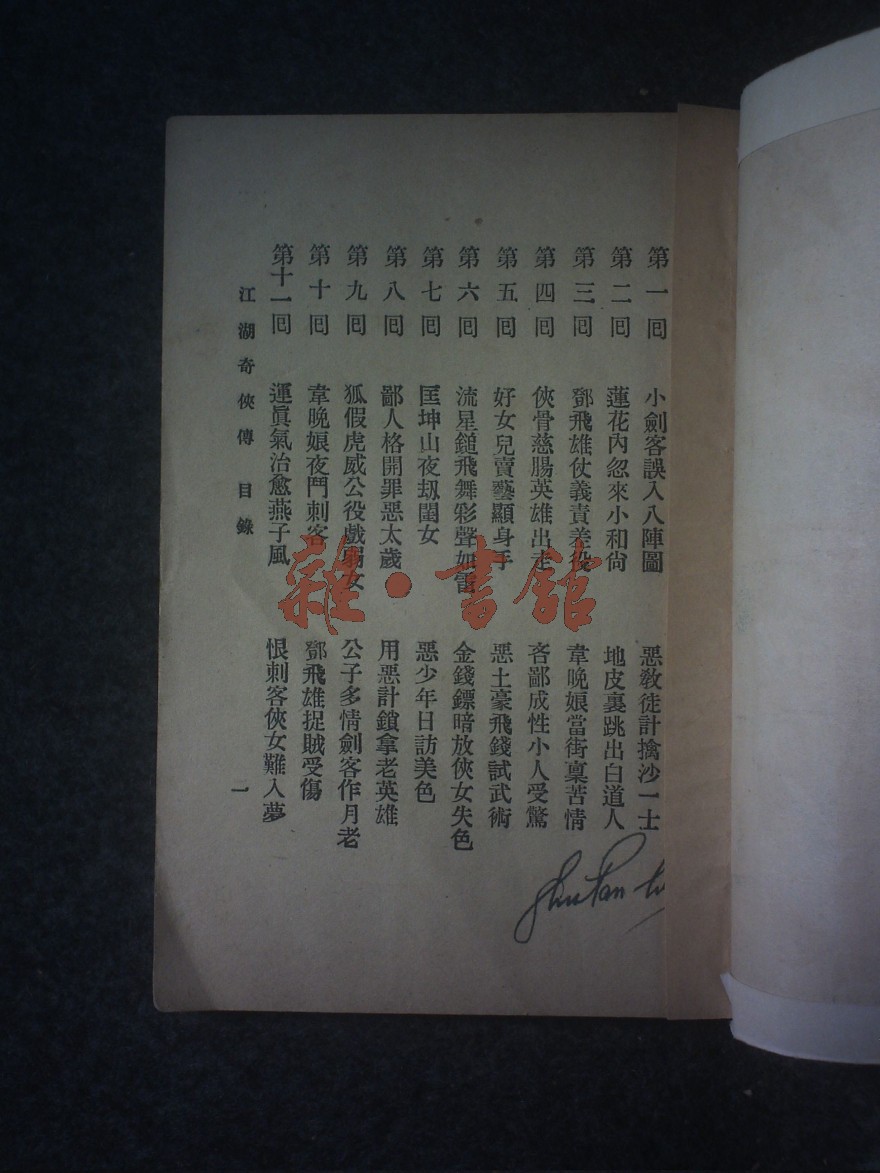 第一回 小劍客誤入八陣圖 惡教徒計擒沙一士
第二回 蓮花內忽來小和尙 地皮裏跳出白道人
第三回 鄧飛雄仗義責差役 韋晚娘當街稟苦情
第四回 俠骨慈腸英雄出走 吝鄙成性小人受驚
第五回 好女兒賣藝顯身手 惡土豪飛錢試武術
第六回 流星鎚飛舞彩聲如雷 金錢鏢暗放俠女失色
第七回 匡坤山夜刼閨女 惡少年日訪美色
第八回 鄙人格開罪惡太歲 用惡計鎖拿老英雄
第九回 狐假虎威公役戲弱女 公子多情劍客作月老
第十回 韋晚娘夜鬥刺客 鄧飛雄捉賊受傷
第十一回 運眞氣治愈燕子風 恨刺客俠女難入夢
江湖奇俠傳 目錄 一
雜·書舘